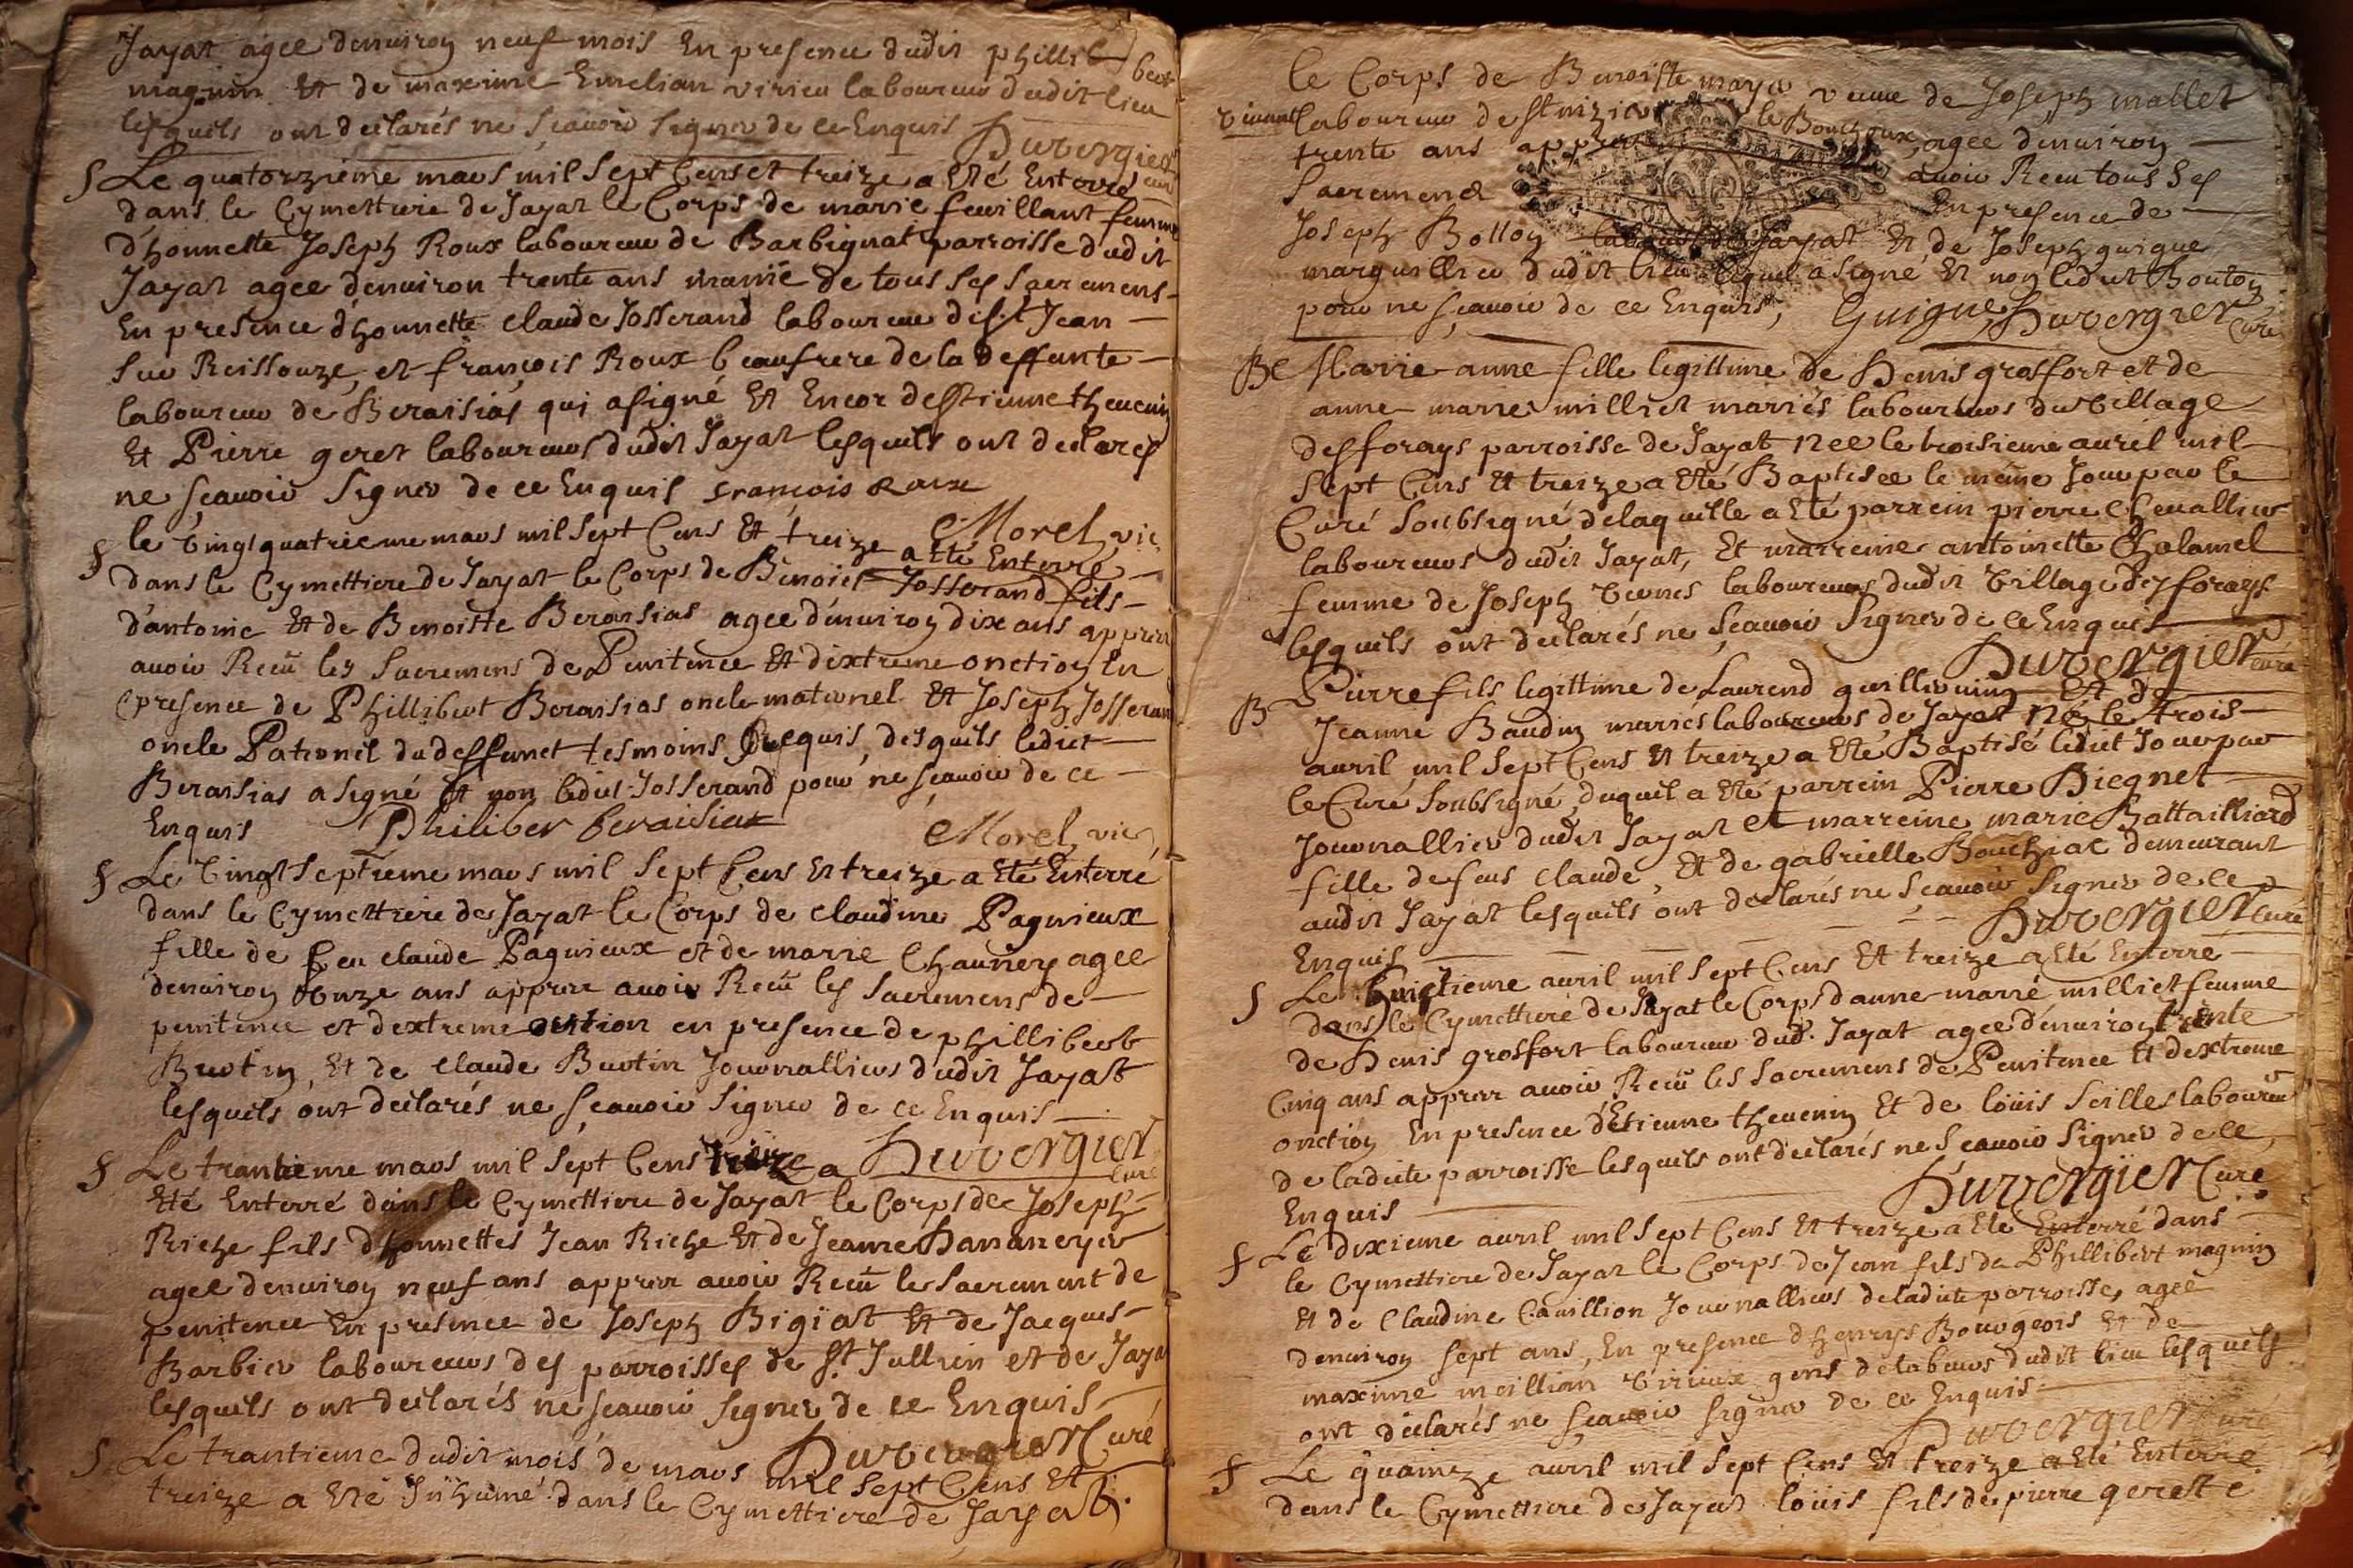 Jayat agee denuiron neuf mois En presence dudit phillib
bert
magnin Et de maxime Emelian virieu laboureur dudit lieu
lesquels ont declarés ne sçauoir signer de ce Enquis Duvergier
curé
S Le quatorzieme mars mil sept Cens et treize a Eté Enterré
dans le Cymettiere de Jayat le Corps de marie feuillant femme
d'honnette Joseph Roux laboureur de Barbignat parroisse dudit
Jayat agee d'enuiron trente ans munie de tous ses sacremens
En presence d'honnette claude Josserand laboureur de st Jean
sur Reissouze, et françois Roux beaufrere de la deffunte
laboureur de Beraisias qui a signé Et Encor d'estienne theuenin
Et Pierre geret laboureurs dudit Jayat lesquels ont declares
ne sçauoir signer de ce Enquis françois Roux
Morel vic
S le vingt quatrieme mars mil sept Cens Et treize a Eté Enterré
dans le Cymettiere de Jayat le Corps de Benoist Josserand fils
d'antoine Et de Benoiste Beraisias agee d'enuiron dix ans apprez
auoir Receu les sacremens de Penitence Et d'extreme onction En
presence de Phillibert Beraisias oncle maternel Et Joseph Josseran
oncle Paternel du deffunct tesmoins Requis, desquels ledict
Beraisias a signé Et non ledict Josserand pour ne sçauoir de ce
Enquis Philiber beraisias Morel vic
S Le vingt septieme mars mil sept Cens Et treize a Eté Enterré
dans le Cymettiere de Jayat le Corps de claudine Pagnieux
fille de feu claude Pagnieux et de marie Chauney agee
denuiron onze ans apprez auoir Receu les sacremens de
penitence et dextreme onction en presence de phillibert
Buotin, Et de claude Buotin Journalliers dudit Jayat
lesquels ont declarés ne sçauoir signer de ce Enquis
Duvergier
curé
S Le trantieme mars mil sept Cens treize a
Eté Enterré dans le Cymettiere de Jayat le Corps de Joseph
Riche fils d'honnettes Jean Riche Et de Jeanne
agee denuiron neuf ans apprez auoir Receu le sacrement de
penitence En presence de Joseph Bigiat Et de Jacques
Barbier laboureurs des parroisses de St Jullien et de Jaya
lesquels ont declarés ne sçauoir signer de ce Enquis
Duvergier Curé
S Le trantieme dudit mois de mars mil sept Cens Et
treize a Eté Inhumé dans le Cymettiere de Jayat
le Corps de Benoiste mayer veuue de Joseph mallet
viuant laboureur de st nizier le Bouchoux, agee denuiron
trente ans apprez auoir Receu tous ses
sacremens En presence de
Joseph Bolloy laboureur de Jayat Et de Joseph guigue
marguillier dudit lieu lequel a signé Et non ledict Bouton
pour ne sçauoir de ce Enquis, Guigue Duvergier
Curé
B Marie anne fille legittime de Denis grosfort et de
anne marie milliet mariés laboureurs du village
des forays parroisse de Jayat née le troisieme auril mil
sept Cens Et treize a Eté Baptisee le méme Jour par le
Curé soubsigné de laquelle a Eté parrein pierre Cheuallier
laboureurs dudit Jayat, Et marreine antoinette Chalamel
femme de Joseph laboureurs dudit village des forays
lesquels ont declarés ne sçauoir signer de ce Enquis
Duvergier curé
B Pierre fils legittime de Laurend guilleruin Et de
Jeanne Baudin mariés laboureurs de Jayat né le trois
auril mil sept Cens Et treize a Eté Baptisé ledict Jour par
le Curé soubsigné, duquel a Eté parrein Pierre
Journallier dudit Jayat et marreine marie Battailliard
fille de feus claude, Et de gabrielle Bouchiac demeurant
audit Jayat lesquels ont declarés ne sçauoir signer de ce
Enquis Duvergier curé
S Le huictieme auril mil sept Cens Et treize a Eté Enterré
dans le Cymettiere de Jayat le Corps d'anne marie milliet femme
de Denis grosfort laboureur dud. Jayat agee d'enuiron trente
Cinq ans apprez auoir Receu les sacremens de Penitence Et dextreme
onction En presence d'Etienne theuenin Et de loüis seilles laboureur
de ladicte parroisse lesquels ont declarés ne sçauoir signer de ce
Enquis Duvergier Curé
S Le dixieme auril mil sept Cens Et treize a Eté Enterré dans
le Cymettiere de Jayat le Corps de Jean fils de Phillibert magnin
Et de Claudine Cauillion Journalliers de ladicte parroisse, agee
denuiron sept ans, En presence d'henrys Bourgeois Et de
maxime meillian virieux gens de labeurs dudit lieu lesquels
ont declarés ne sçauoir signer de ce Enquis
Duvergier curé
S Le quainze auril mil sept Cens Et treize a Eté Enterré
dans le Cymettiere de Jayat loüis fils de pierre gereste